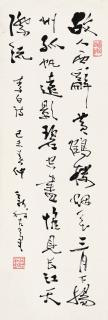 故人西辭黃鶴樓烟花三月下揚
州孤帆遠影碧空盡惟見長江天
際流 李白詩